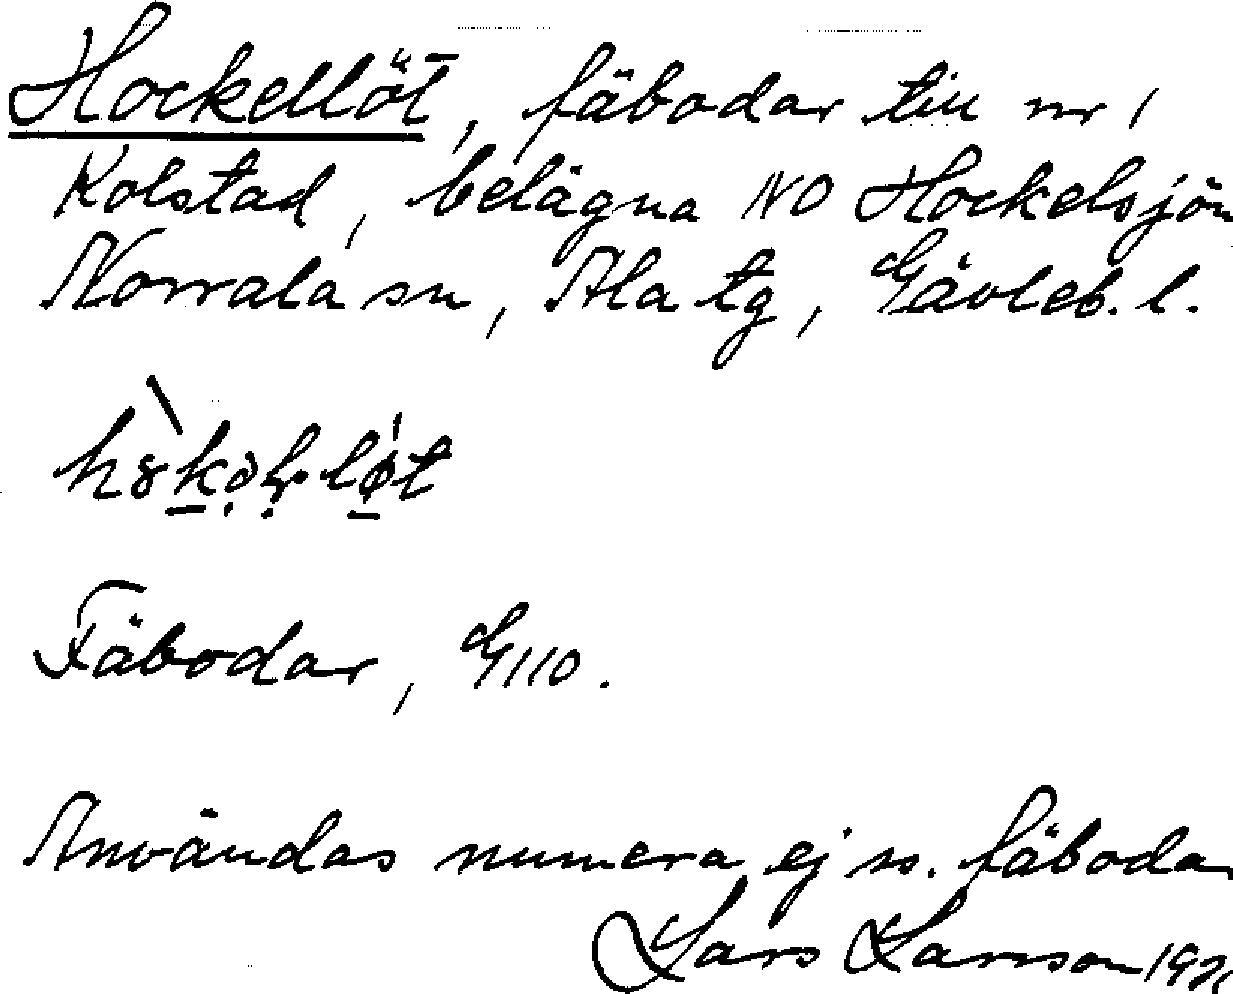 Hockellöt, fäbodar till nr 1
Kolstad, belägna NO Hockelsjön
Norrala sn, Ala tg, Gävleb. l.
Fäbodar, G110.
Användas numera ej ss. fäboda
Lars Larsson